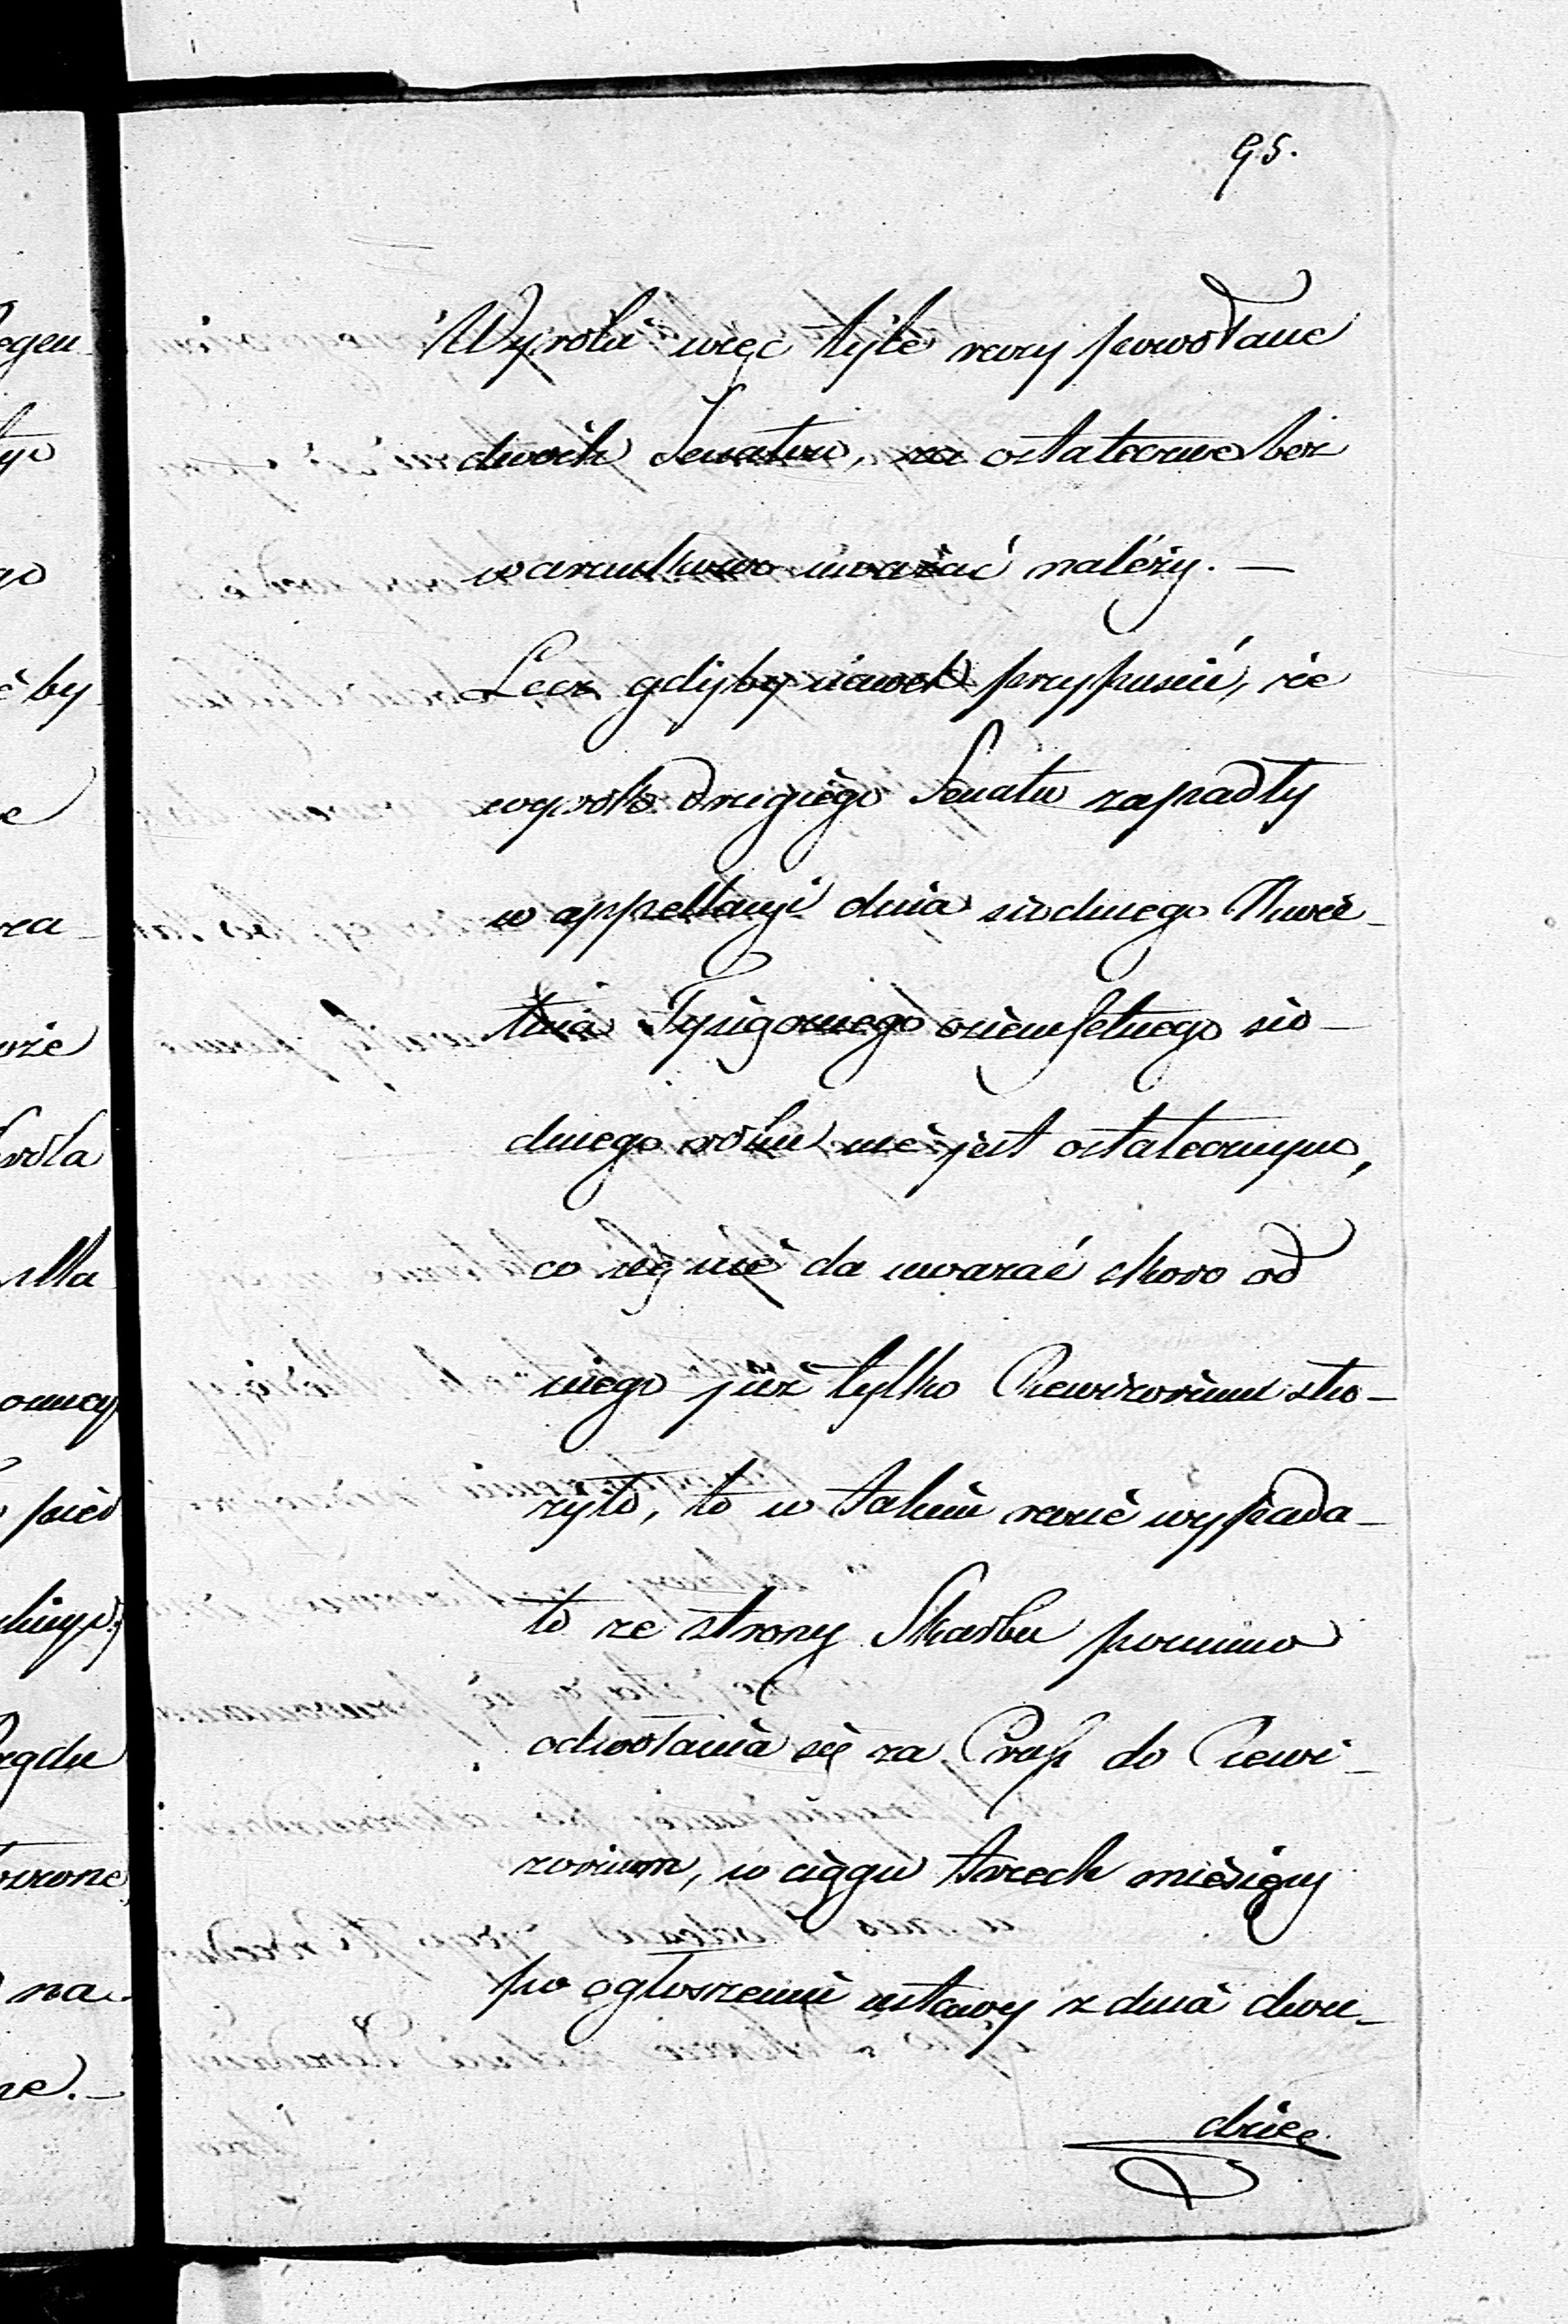 95.
Wyroki więc tyle razy powołane
dwóch Senatów, za ostateczne bez
warunkowo uważać należy. —
Lecz gdyby nawet przypuścić, że
wyrok drugiego Senatu zapadły
w appellacyi dnia siodmego Kwie-
tnia Tysiącznego ośiemsetnego sio-
dmego roku nie jest ostatecznym,
co się nie da uważać skoro od
niego już tylko Rewizorium słu-
żyło, to w takim razie wypada-
ło ze strony Skarbu pomimo
odwołania się za Prus do Rewi-
zorium, w ciągu trzech miesięcy
po ogłoszeniu ustawy z dnia dwu-
dzies